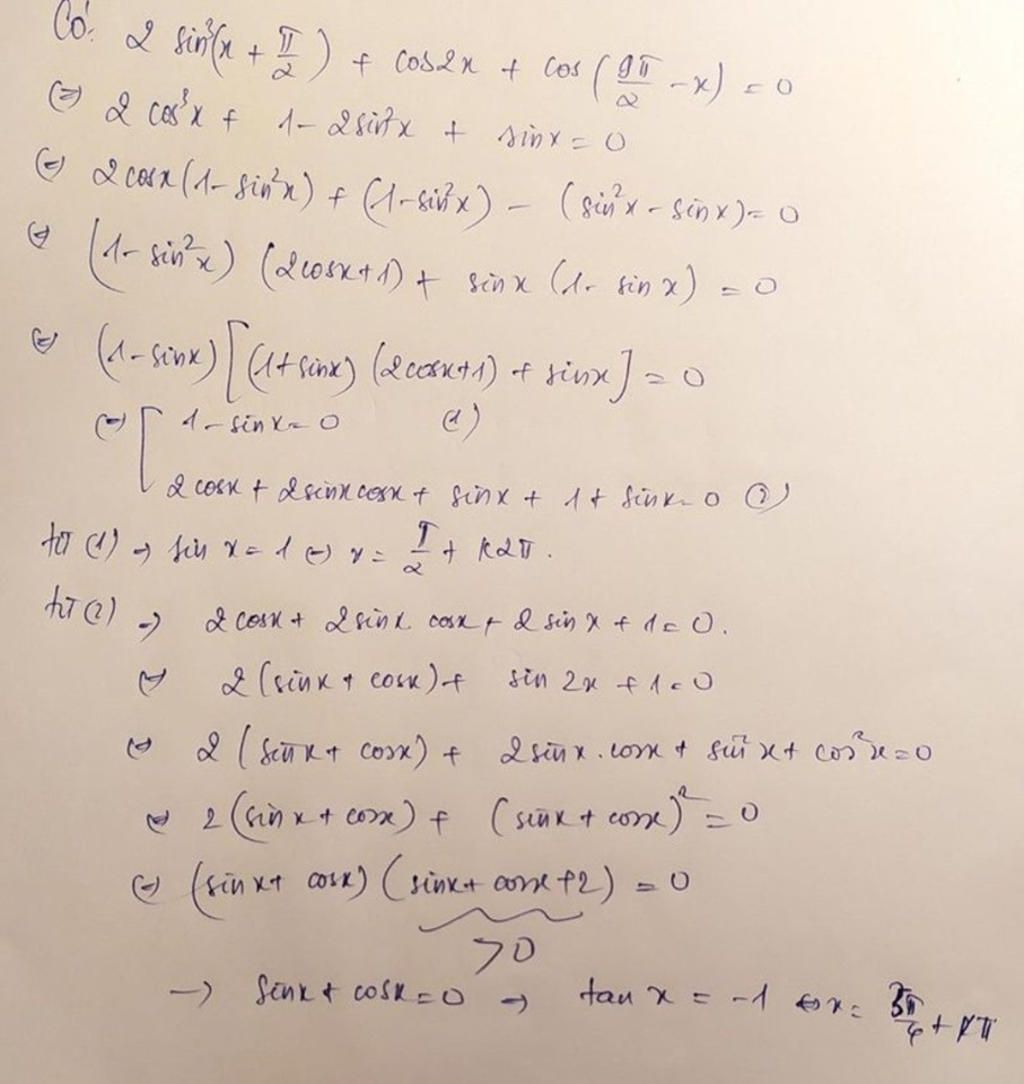 Có: 2 sin³(x + π/2) + cos2x + cos(9π/2 - x) = 0
(=) 2 cos³x + 1 - 2sin²x + sinx = 0
(=) 2cosx(1 - sin²x) + (1 - sin²x) - (sin²x - sinx) = 0
(=) (1 - sin²x) (2cosx + 1) + sinx (1 - sin x) = 0
(=) (1 - sinx) [(1 + sinx) (2cosx + 1) + sinx] = 0
(=) [ 1 - sinx = 0 (1)
2cosx + 2sinxcosx + sinx + 1 + sinx = 0 (2)
từ (1) → sin x = 1 (=) x = π/2 + k2π.
từ (2) → 2cosx + 2sinx cosx + 2 sin x + 1 = 0.
(=) 2(sinx + cosx) + sin 2x + 1 = 0
(=) 2 (sinx + cosx) + 2sinx.cosx + sin²x + cos²x = 0
(=) 2(sinx + cosx) + (sinx + cosx)² = 0
(=) (sinx + cosx) (sinx + cosx + 2) = 0
>0
→ sinx + cosx = 0 → tan x = -1 (=) x = 3π/4 + kπ